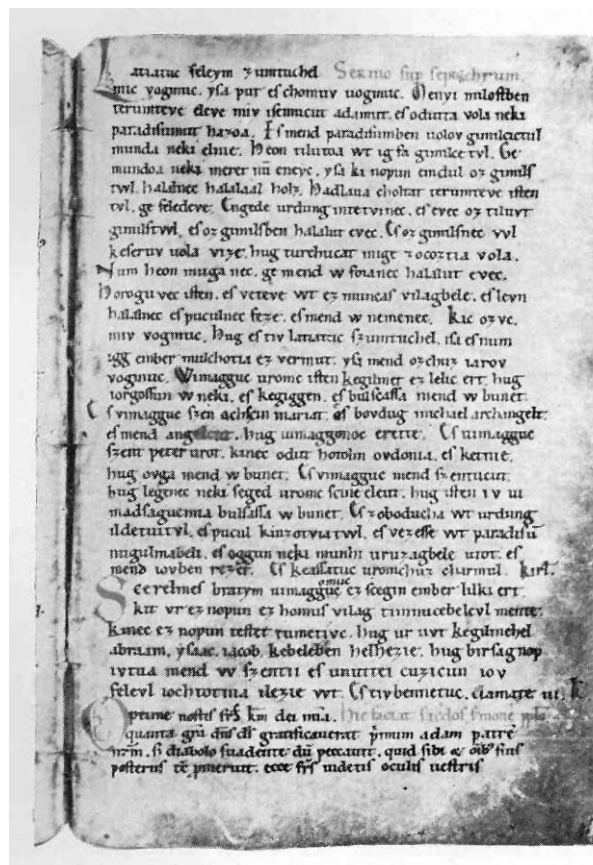 Latiatuc feleym zumtuchel Sermo sup sepulchrum.
mic vogmuc. ysa pur es chomuv uogmuc. Menyi milostben
terumteve eleve miv isemucut adamut. es odutta vola neki
paradisumut hazoa. Es mend paradisumben uolov gimilcictul
munda neki elnie. Heon tilutoa wt ig fa gimilce tvl. Ge
mundoa neki meret nū eneyc. ysa ki nopun emdul oz gimils
twl. halalnec halalaal holz. Hadlaua choltat terumteve isten
tvl. ge feledeve. Engede urdung intetvinec. es evec oz tiluvt
gimilstwl. es oz gimilsben halalut evec. Es oz gimilsnec vvl
keseruv uola vize. hug turchucat mige zocoztia vola.
Num heon muga nec. ge mend w foianec halalut evec.
Horogu vec isten. es veteve wt ez muncas vilagbele. es levn
halalnec es puculnec feze. es mend w nemenec. Kic ozvc.
miv vogmuc. Hug es tiv latiatuc szumtuchel. isa es num
igg ember mulchotia ez vermut. ysa mend ozchuz iarov
vogmuc. Wimagguc uromc isten kegilmet ez lelic ert. hug
iorgossun w neki. es kegiggen. es bulsassa mend w bunet.
Es vimagguc szen achscin mariat. es bovdug michael archangelt.
es mend angelcut. hug uimaggonoc erette. Es uimagguc
szent peter urot. kinec odut hotolm ovdonia. es ketnie.
hug ovga mend w bunet. Es vimagguc mend szentucut.
hug legenec neki seged uromc scine eleut. hug isten iv ui
madsagucmia bulsassa w bunet. Es zoboducha wt urdung
ildetuitvl. es pucul kinzotviatwl. es vezesse wt paradisū
nugulmabeli. es oggun neki munhi uruzagbele utot. es
mend iovben rezet. Es keassatuc uromchuz charmul. Kirl.
Scerelmes bratym uimaggomuc ez scegin ember lilki ert.
kit vr ez nopun ez homus vilag timnucebelevl mente.
kinec ez nopun testet tumetivc. hug ur uvt kegilmehel
abraam. ysaac. iacob. kebeleben helhezie. hug birsagnop
ivtua mend w szentii es unuttei cuzicun iov
felevl iochtotnia ilezie wt. Es tivbennetuc. clamate iii. K
Optime nostis frs̄ km̄ dei mīa. hic faciat sacdos smonē
quanta grā dn̄s ds̄ gratificauerat p̄mum adam patrē
nrm̄. si diabolo suadente dū peccauit. quid sibi & oib; suis
posteris tē pmeruit. ecce frs̄ uidetis oculis uestris